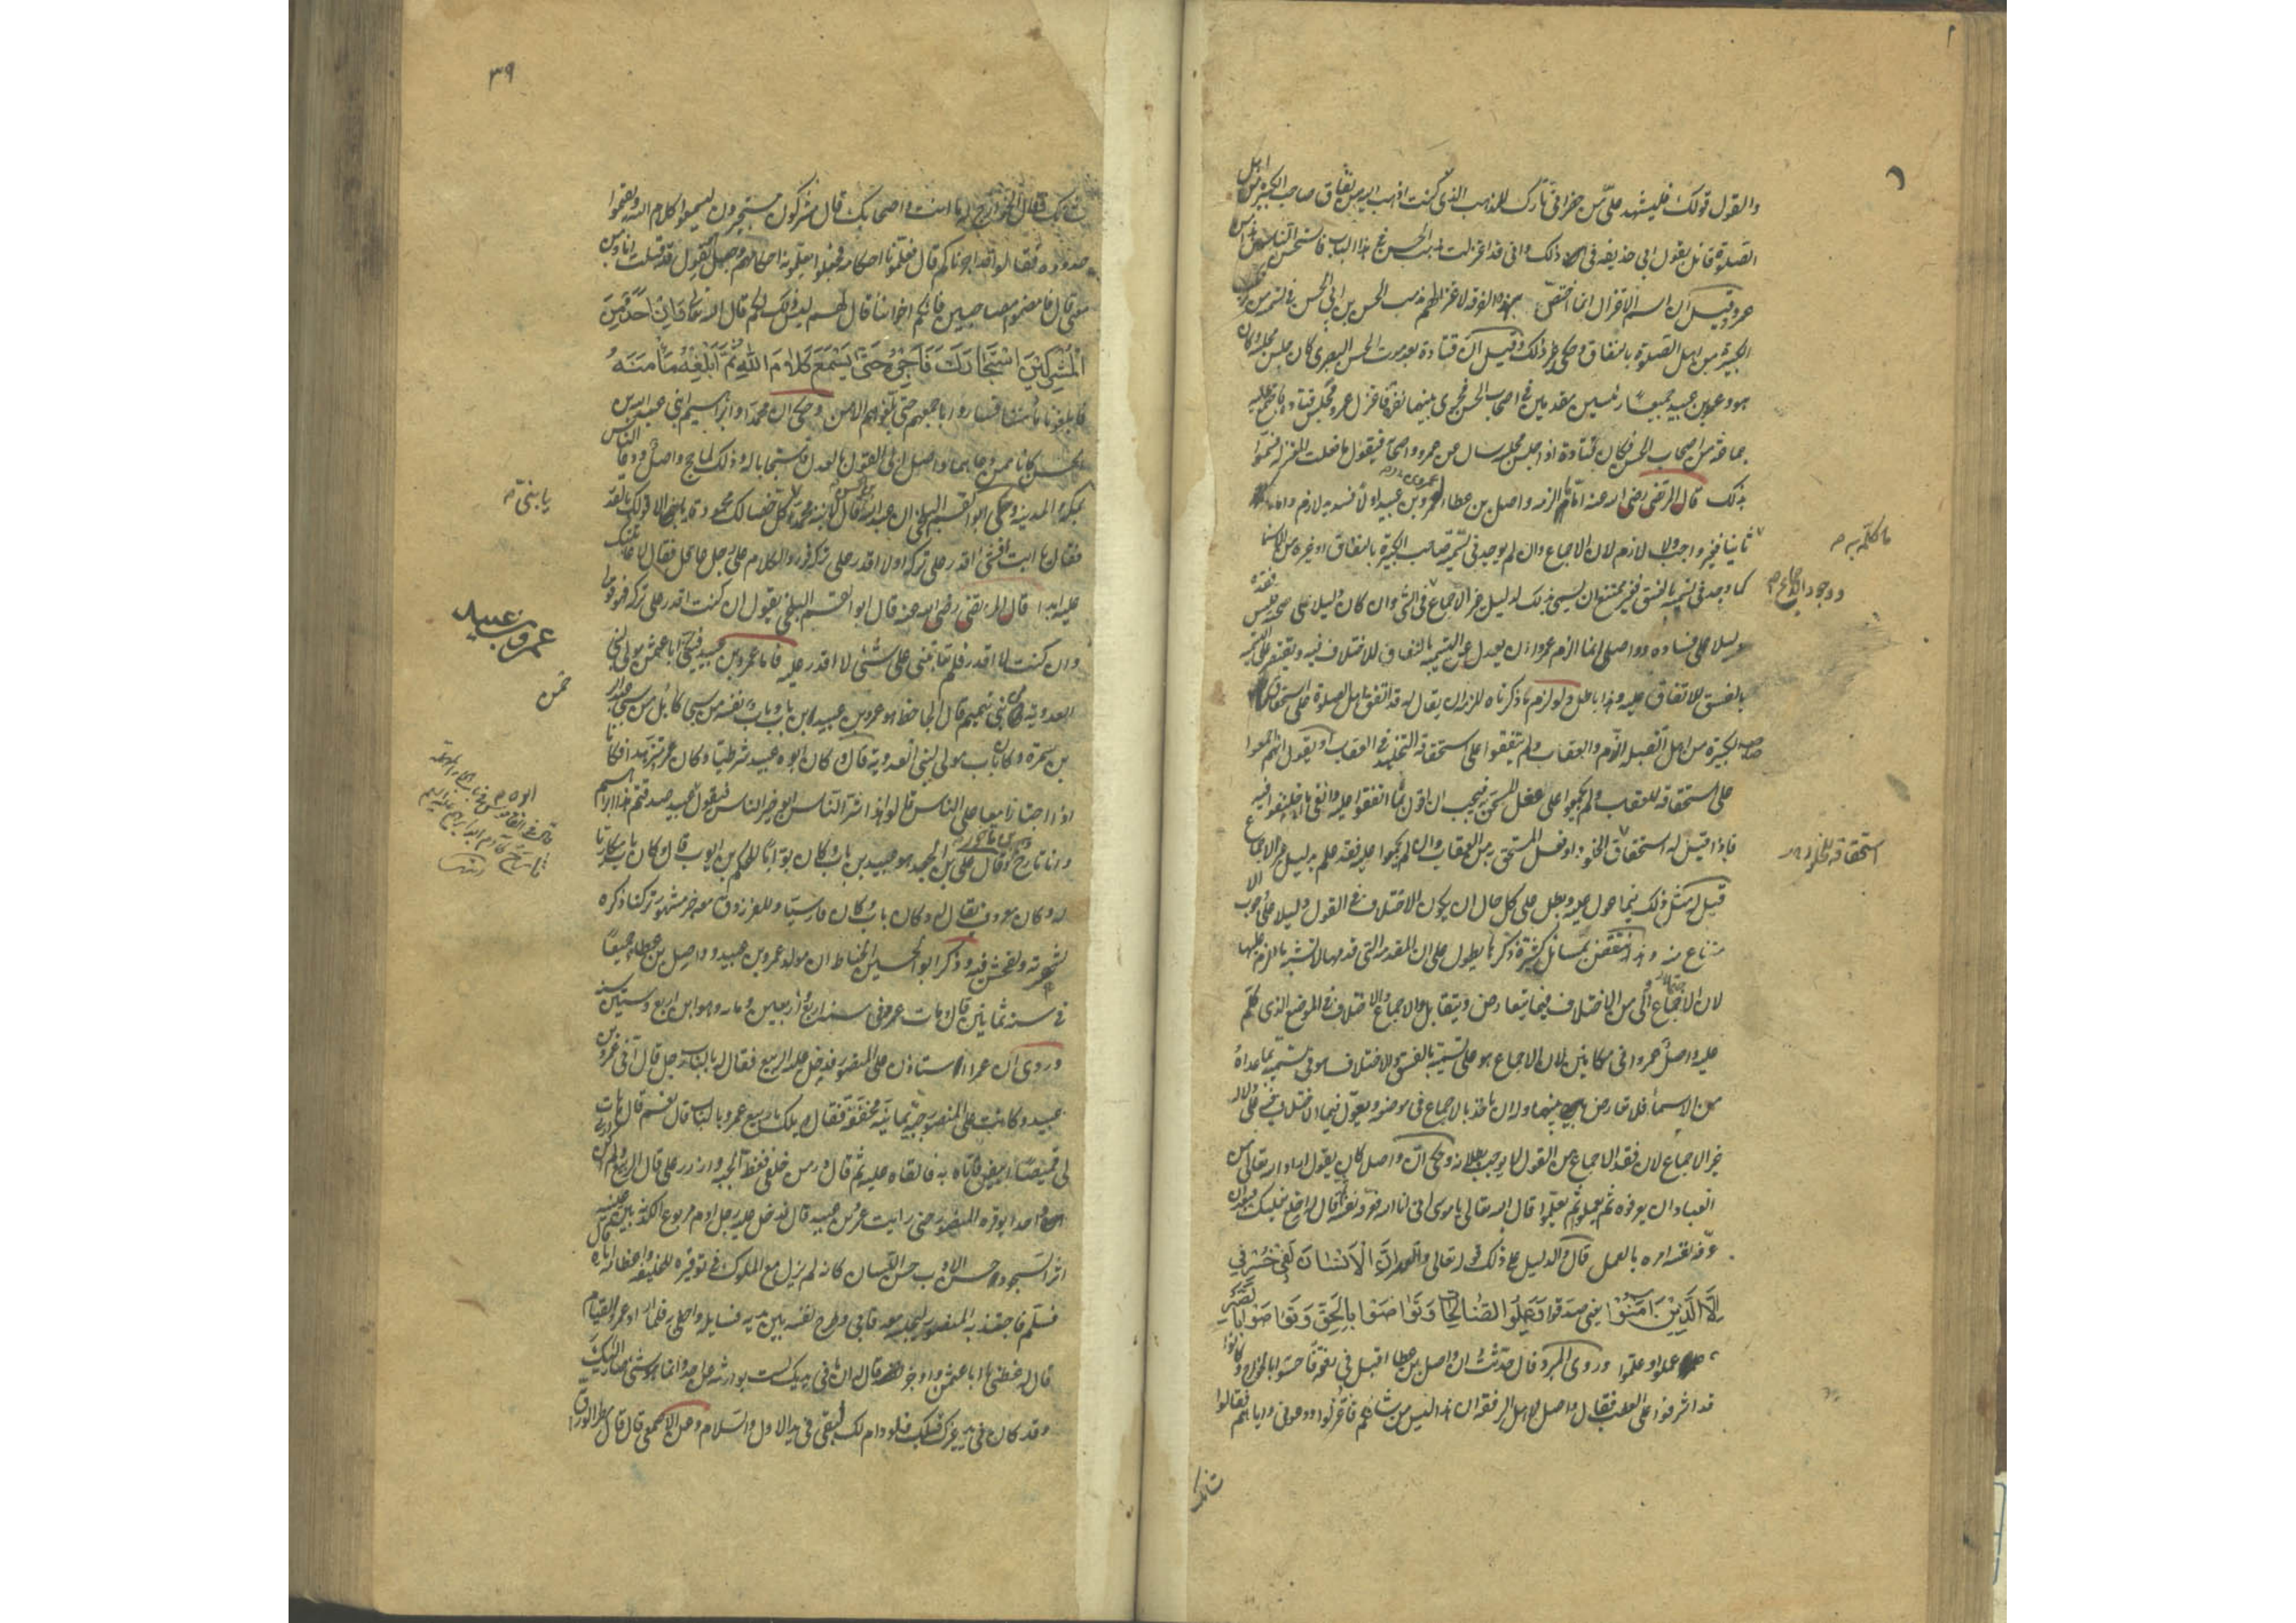 والقول قولك فليشهد علي من حضر اني تارك للمذهب الذي كنت اذهب اليه من نفاق صاحب الكبيرة من اهل
الصلوة قائل بقول ابي حذيفة في ذلك واني قد اعتزلت مذهب الحسن في هذا الباب فاستحسن الناس هذا من
عمرو وقيل ان اسم الاعتزال انما اختص بهذه الفرقة لاعتزالهم مذهب الحسن بن ابي الحسن في تسمية مرتكب
الكبيرة من اهل الصلوة بالنفاق وحكي غير ذلك وقيل ان قتادة بعد موت الحسن البصري كان يجلس مجلسه وكان
هو وعمرو بن عبيد جميعا رئيسين مقدمين في اصحاب الحسن فجرى بينهما نفرة فاعتزل عمرو مجلس قتادة واجتمع عليه
جماعة من اصحاب الحسن فكان قتادة اذا جلس مجلسه سال عن عمرو واصحابه فيقول ما فعلت المعتزلة فسموا
بذلك قال المرتضى رضي الله عنه اما ما الزمه واصل بن عطاء لعمرو بن عبيد اولا فسديد لازم واما
ثانيا فغير واجب ولا لازم لان الاجماع وان لم يوجد في تسمية صاحب الكبيرة بالنفاق او غيره من الاسماء
كما وجد في تسميته بالفسق فغير ممتنع ان يسمى بذلك لدليل غير الاجماع في الشيء وان كان دليلا على صحته فليس فقده
دليلا على فساده وواصل انما الزم عمروا ان يعدل عن التسمية بالنفاق للاختلاف فيه ويقتصر على التسمية
بالفسق للاتفاق عليه وهذا باطل ولو لزم ما ذكرناه للزم ان يقال له قد اتفق اهل الصلوة على استحقاق
صاحب الكبيرة من اهل القبلة الذم والعقاب ولم يتفقوا على استحقاقه التخليد في العقاب او يقول انهم اجمعوا
على استحقاقه للعقاب ولم يجمعوا على فعل المستحق به فيجب ان اقول بما اتفقوا عليه وانفي ما اختلفوا فيه
فاذا قيل له استحقاق الخلود او فعل المستحق به من العقاب وان لم يجمعوا عليه فقد علم بدليل غير الاجماع
قيل له مثل ذلك فيما عول عليه وبطل على كل حال ان يكون الاختلاف في القول دليلا على وجوب الا
متناع منه وهذا ينتقض بمسائل كثيرة ذكرها يطول على ان المقدمة التي قدمها لا تشبه ما لزم عليها
لان الاجماع اولى من الاختلاف فيما يتعارض ويتقابل والاجماع والاختلاف في الموضع الذي كلم
عليه واصل عمروا في مكانين لان الاجماع هو على تسميته بالفسق والاختلاف هو في تسميته بما عداه
من الاسماء فلا تعارض بينهما وله ان ياخذ بالاجماع في موضعه ويعول فيما الاختلاف فيه على دلالة
غير الاجماع لان فقد الاجماع من القول لا يوجب بطلانه وحكي ان واصل كان يقول اراد الله تعالى من
العباد ان يعرفوه ثم يعملوا ثم يعلموا قال الله تعالى يا موسى اني انا الله فعرفه نفسه ثم قال اخلع نعليك فبعد ان
عرفه نفسه امره بالعمل قال والدليل على ذلك قوله تعالى والعصر ان الانسان لفي خسر
الا الذين امنوا يعني صدقوا وعملوا الصالحات وتواصوا بالحق وتواصوا بالصبر
علموا وعملوا وعلموا وروى المبرد قال حدثت ان واصل بن عطا اقبل في رفقة فاحسوا بالخوارج وكانوا
قد اشرفوا على العطب فقال واصل لاهل الرفقة ان هذا ليس من شأنكم فاعتزلوا ودعوني واياهم فقالوا
شانك
ما كلمه به
ووجود الاجماع
استحقاقه للخلود
٣٩
شانك فقال الخوارج له ما انت واصحابك قال مشركون مستجيرون ليسمعوا كلام الله ويفهموا
حدوده فقالوا قد اجرناكم قال فعلمونا احكامه فجعلوا يعلمونه احكامهم وجعل يقول قد قبلت انا ومن
معي قال فامضوا مصاحبين فانكم اخواننا قال لهم ليس ذلك لكم قال الله تعالى وان احد من
المشركين استجارك فاجره حتى يسمع كلام الله ثم ابلغه مامنه
فابلغونا مأمننا فساروا باجمعهم حتى بلغوهم الامن وحكي ان محمدا وابراهيم ابني عبد الله بن
الحسن كانا ممن دعاهما واصل الى القول بالعدل فاستجابا له وذلك لما حج واصل ودعا الناس
بمكة والمدينة وحكى ابو القسم البلخي ان عبد الله قال لابنه محمد كل خصالك محمودة يا بني الا قولك بالقدر
فقال يا ابت افشيء اقدر على تركه او لا اقدر على تركه فورد الكلام على رجل عاقل فقال لا عاتبتك
عليه ابدا قال المرتضى رضي الله عنه قال ابو القسم البلخي يقول ان كنت اقدر على تركه فهو قولي
وان كنت لا اقدر فلم تعاتبني على شيء لا اقدر عليه فاما عمرو بن عبيد فيكنى ابا عثمن مولى لبني
العدوية من بني تميم قال الجاحظ هو عمرو بن عبيد بن باب وباب نفسه من سبي كابل من سبي عبد الرحمن
بن سمرة وكان باب مولى لبني العدوية قال وكان ابوه عبيد شرطيا وكان عمرو متزهدا فكانا
اذا اجتازا معا على الناس قالوا هذا شر الناس ابو خير الناس فيقول عبيد صدقتم هذا ابراهيم
وانا تارخ وقال علي بن الجعد هو عبيد بن باب وكان بوابا للحكم بن ايوب قال وكان باب مكاريا
له دكان معروف يقال له دكان باب وكان فارسيا وللفرزدق معه خبر مشهور تركنا ذكره
لشهرته ولفحش فيه وذكر ابو الحسين الخياط ان مولد عمرو بن عبيد وواصل بن عطا جميعا
في سنة ثمانين قال ومات عمرو في سنة اربع واربعين ومائة وهو ابن اربع وستين سنة
وروي ان عمرا استاذن على المنصور فدخل عليه الربيع فقال له بالباب رجل قال اني عمرو بن
عبيد وكانت على المنصور جبة يمانية محققة فقال ويلك يا ربيع عمرو بالباب قال نعم قال هات
لي قميصا ابيض فاتاه به فالقاه عليه ثم قال زر من خلفي فغط الجبة وازدر علي قال الربيع ولم ار
احدا يوقره المنصور حتى رايت عمرو بن عبيد قال فدخل عليه رجل ادم مربوع الكدنة بين عينيه
اثر السجود حسن الادب حسن اللسان كانه لم يزل مع الملوك في توقيره للخليفة واعظامه اياه
فسلم فاجتذبه المنصور ليجلسه معه فابى وطرح نفسه بين يديه فسايله واحفى به فلما اراد عمرو القيام
قال له عظني يا ابا عثمن واوجز قال ان ما في يديك لست بوارثه عن احد وانما هو شيء صار اليك
وقد كان في يد غيرك قبلك فلو دام لك لبقي في يد الاول والسلام وعن الاصمعي قال قال مطر الوراق
يا بني
عمرو بن عبيد